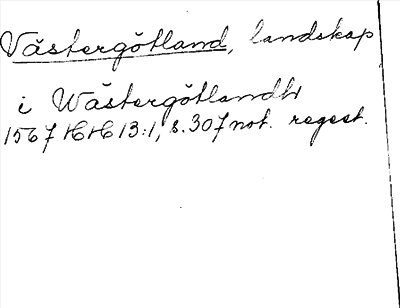 Västergötland, landskap
i Wästergötlandh
1567 HH 13:1, s. 307 not. regest.